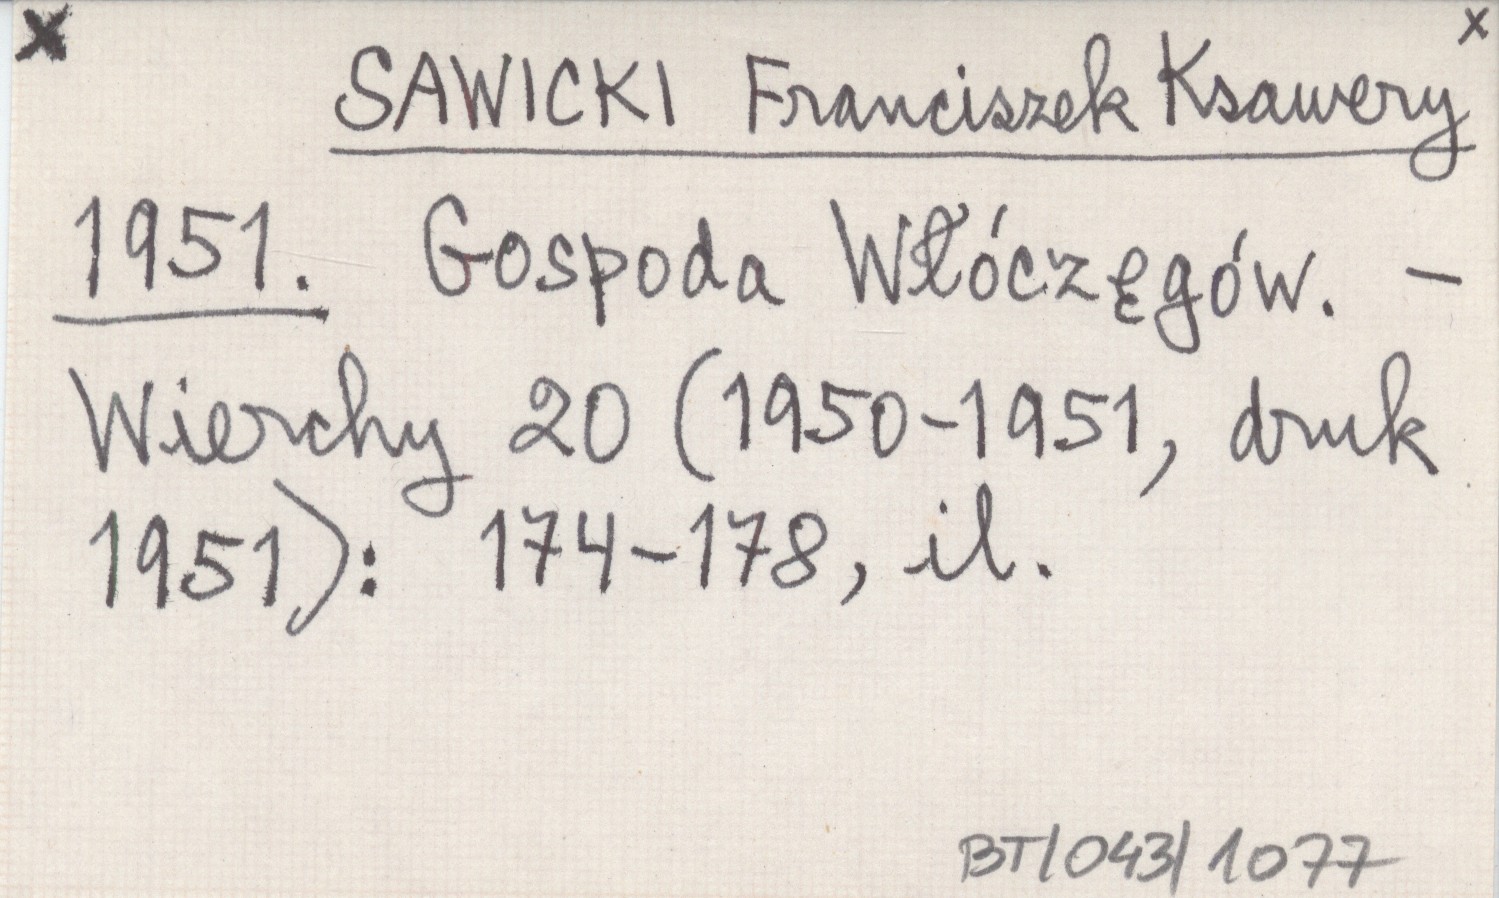 x x
SAWICKI Franciszek Ksawery
1951. Gospoda Włóczęgów. –
Wierchy 20 (1950-1951, druk
1951): 174-178, il.
BT/043/1077